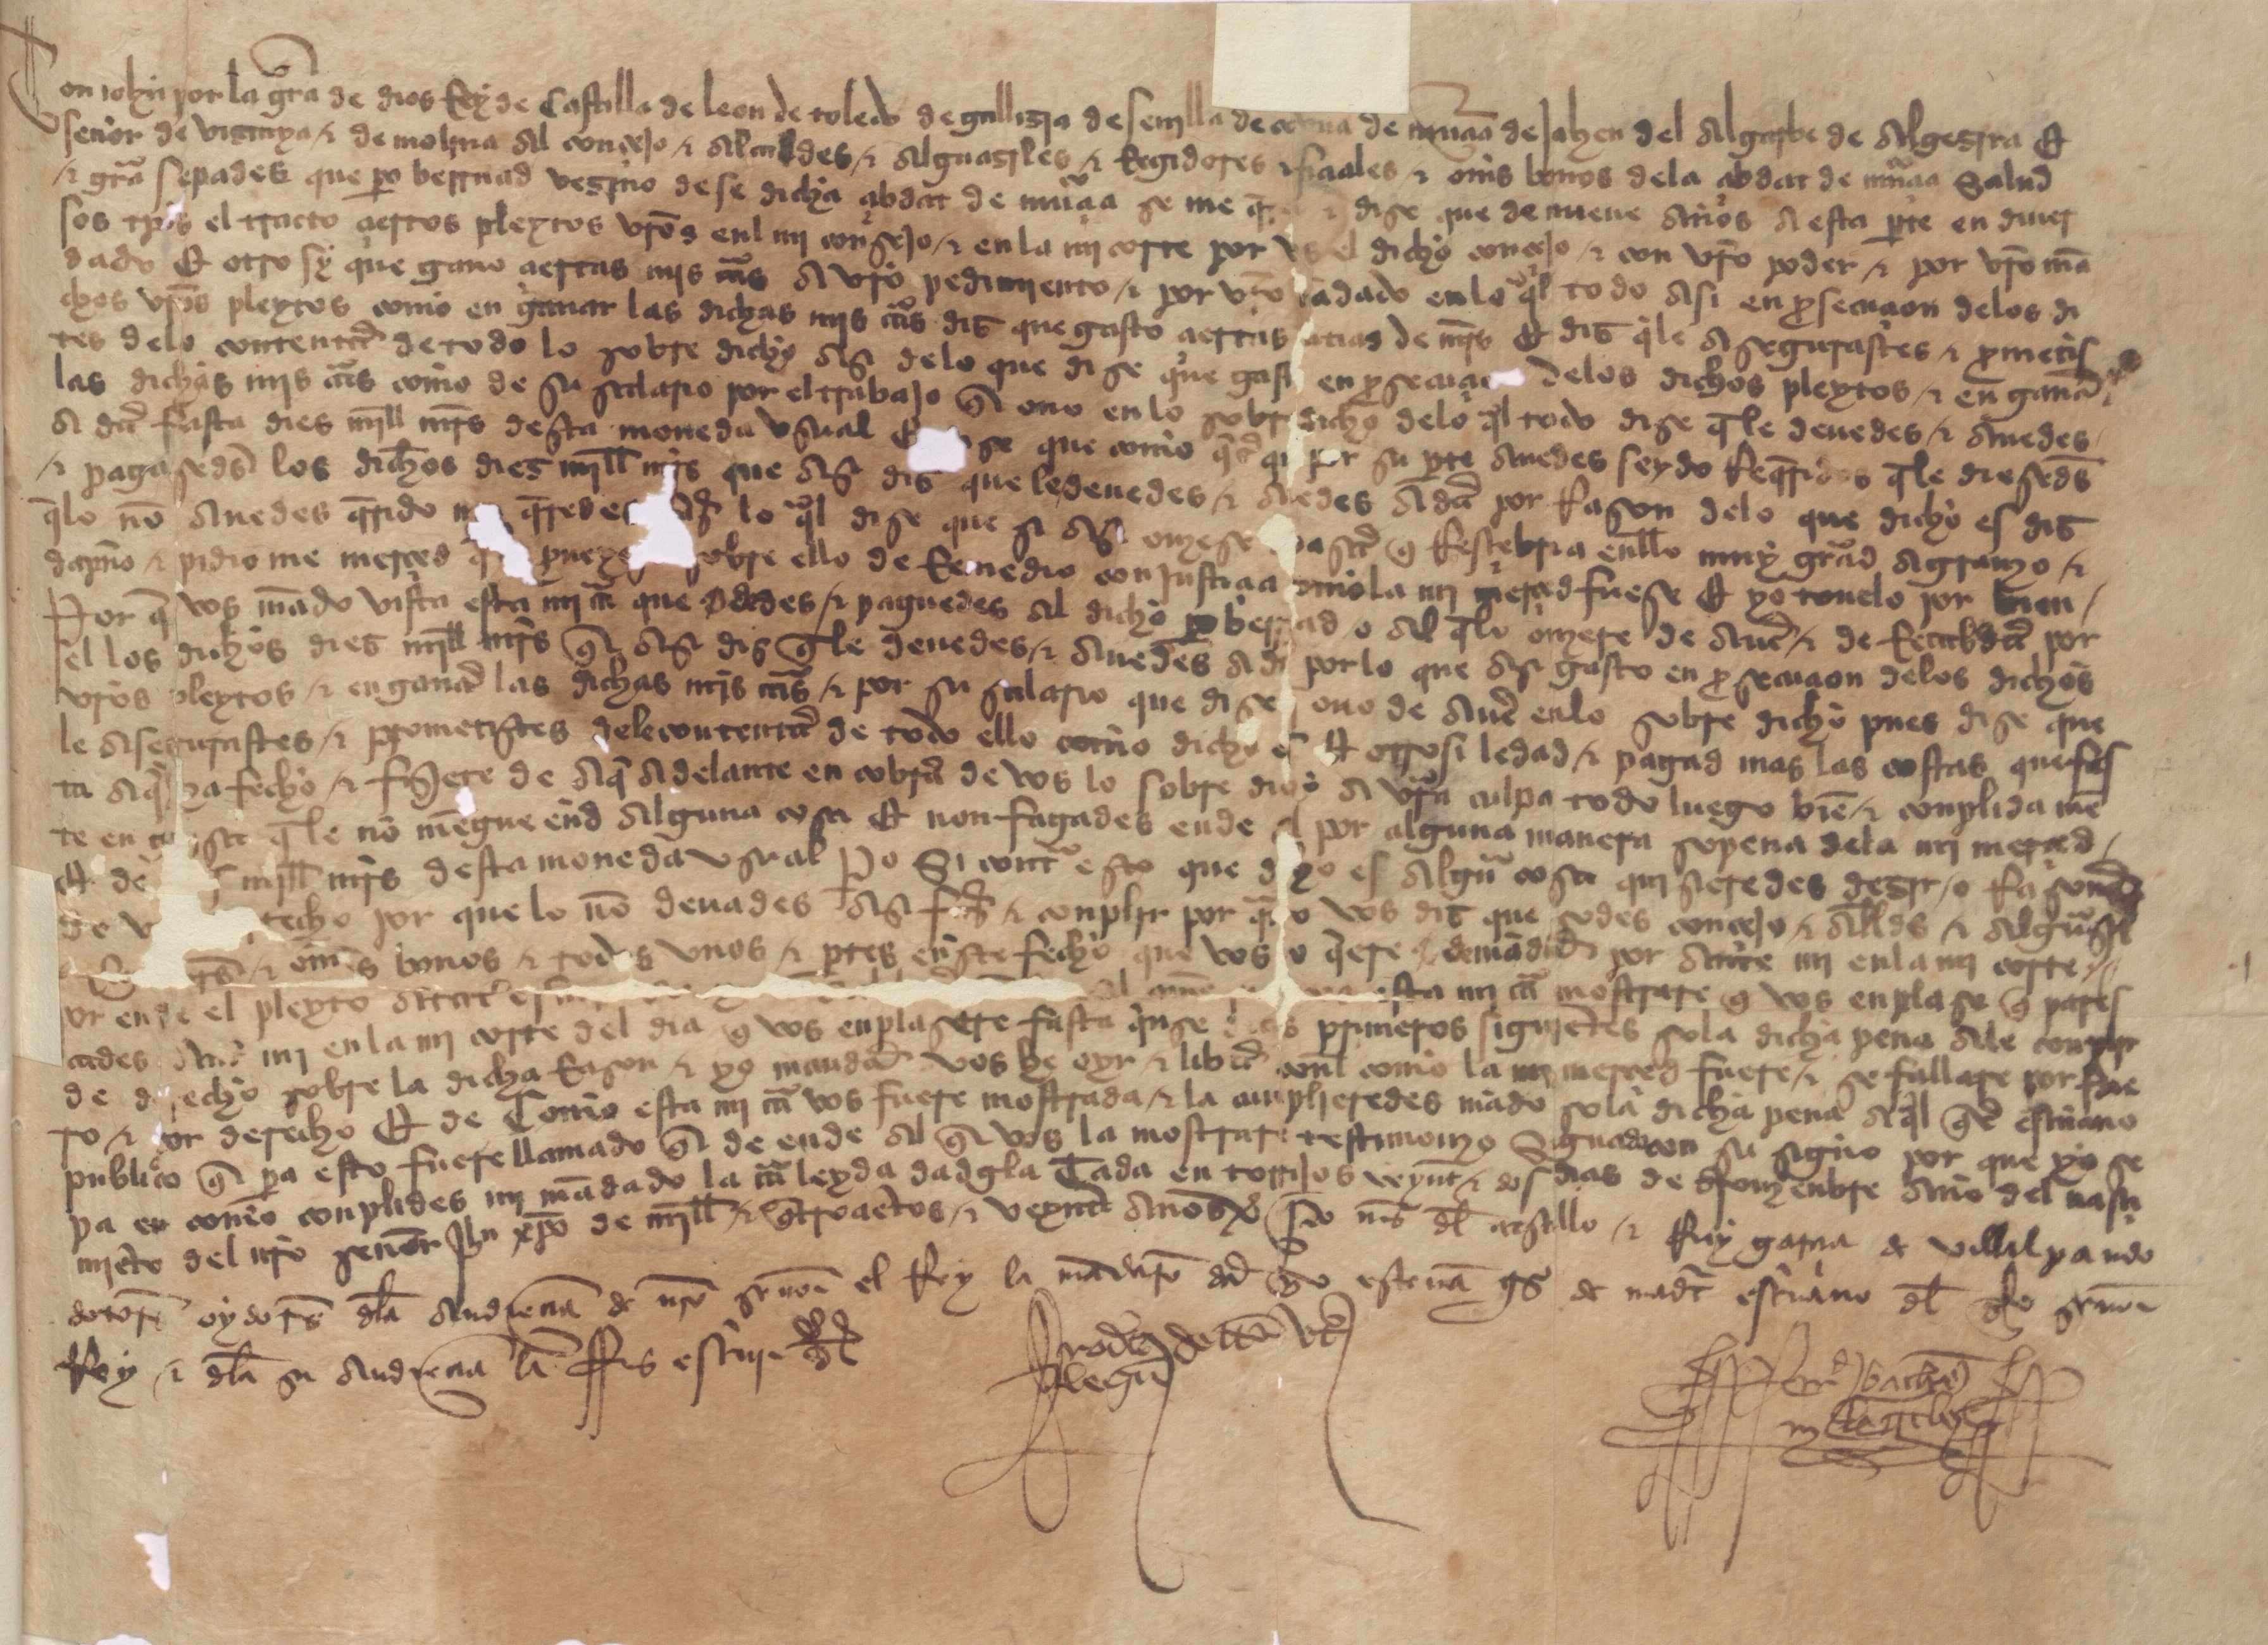 Don iohn por la gra de dios Rey de Castilla de leon de toledo de gallizia de seuilla de cordoua de murcia de Jahen del Algarbe de Algezira Et
señor de vizcaya / e de molina Al concejo / e Alcaldes / e Alguaziles / e Regidores e ofiçiales e omes bonos de la çibdat de murçia Salud
/ e gra sepades que po bernad vezino dese dicha çibdat de murçia se me e dize que de nueue Años a esta pte en diuer
sos tpos el tracto çiertos pleytos vros enl mi consejo / e en la mi corte por el dicho conçejo / e con vro poder / e por vro ma
dado Et otrosy que gano çiertas mis cas A vro pedimiento / e por vro ma dado en lo ql todo Asi en prosecuçion delos di
chos vros pleytos como en ganar las dichas mis cas diz que gasto çiertas de mrs Et diz qle Asegurastes / e prometis
tes delo contentar de todo lo sobre dicho Asi delo que dize que gasto en prosecuçion delos dichos pleytos / e en ganar
las dichas mis cas como de su salario por el trabajo q ouo en lo sobre dicho delo ql todo dize qle deuedes / e Auedes
A dar fasta diez mill mrs desta moneda vsual Et dize que como qer q por su pte Auedes seydo Reqridos qle diesedes
/ e pagasedes los dichos diez mill mrs que Asi diz que le deuedes / e Auedes A dar por Razon delo que dicho es diz
qlo no Auedes qrido ni qredes lo ql dize que si Asi ouiese a pasar q Resçebiria enllo muy grad Agrauio / e
dapno / e pidiome merçed q proueyese sobre ello de Remedio con justiçia como la mi merçed fuese Et yo touelo por bien /
Por q vos mado vista esta mi ca que dedes / e paguedes Al dicho po bernad o Al qlo ouiere de Auer / e de Recabdar por
el los dichos diez mill mrs q Asi diz qle deuedes / e Auedes A dar por lo que Asi gasto en prosecuçion delos dichos
vros pleytos / e en ganar las dichas mis cas / e por su salario que dize ouo de Auer enlo sobre dicho pues dize que
le Asegurastes / e prometistes dele contentar de todo ello como dicho es Et otrosi le dad / e pagad mas las costas que fas
ta Aqi ha fecho / e fiziere de Aqi Adelante en cobrar de vos lo sobre dicho A vra culpa todo luego bien / e conplida men
te en guisa qle no mengue end Alguna cosa Et non fagades ende Al por alguna manera so pena dela mi merçed /
Et de mill mrs desta moneda vsual Po Si contra esto que dicho es Algun cosa quisieredes dezir / o Razonar
de vro derecho por que lo no deuades Asi fazer / e conplir por qto vos diz que sodes conçejo / e Allds / e Alguazil
/ e omes bonos / e todos vnos / e ptes eneste fecho que vos o qere demadar por Ante mi en la mi corte /
or ende el pleyto esta mi ca mostrare q vos enplase q pares
cades Ante mi en la mi corte del dia q vos enplasere fasta qinse dias primeros siguietes sola dicha pena A le conplir
de derecho sobre la dicha Razon / e yo mandar vos he oyr / e librar conl como la mi merçed fuere / e se fallare por fue
ro / e por derecho Et de Como esta mi ca vos fuere mostrada / e la cunplieredes mado sola dicha pena Aql qer escriuano
publico q pa esto fuere llamado q de ende Al q vos la mostrare testimonyo Signado con su signo por que yo se
pa en como conplides mi madado la ca leyda dadgla Dada en torrijos veynt / e dos dias de dizienbre Año del nasçi
mieto del nro señor Jhu xpo de mill / e qtroçietos / e veynte Años del castillo / e Ruy garcia de villalpando
dotores oydores dla Audiençia de nro señor el Rey la madaro dar yo esteua gs de madt escriuano dl dho señor
Rey / e dla su Audiençia la fis escriuir